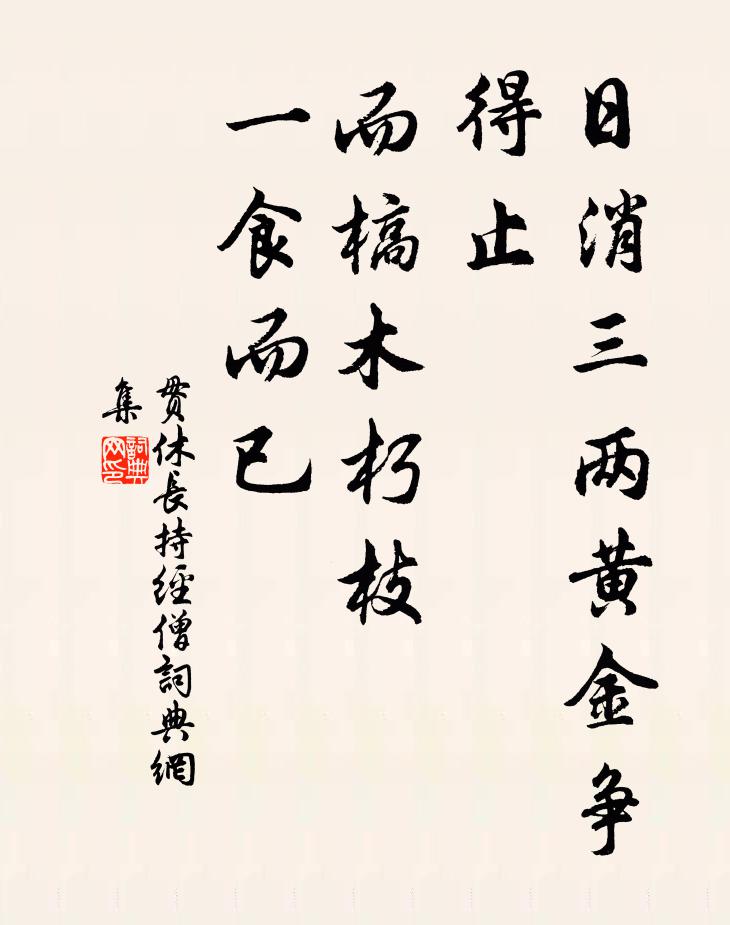 日消三两黄金争
得止
而槁木朽枝
一食而已
贯休長持經僧詞典網
集
詞典網印